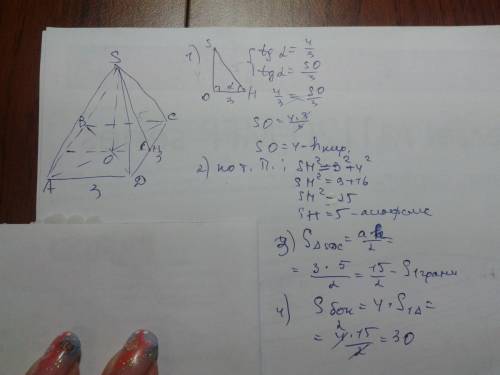 S
B
C
O
H
3
A
D
3
1) S
O
H
α
3
{ tg α = 4/3
tg α = SO/3
4/3 = SO/3
SO = 4·3/3
SO = 4 - h пир.
2) по т. П.: SH² = 3² + 4²
SH² = 9 + 16
SH² = 25
SH = 5 - апофема
3) S = ah/2 =
= 3·5/2 = 15/2 - S 1 грани
4) Sбок = 4·S1Δ =
= 4·15/2 = 30
2